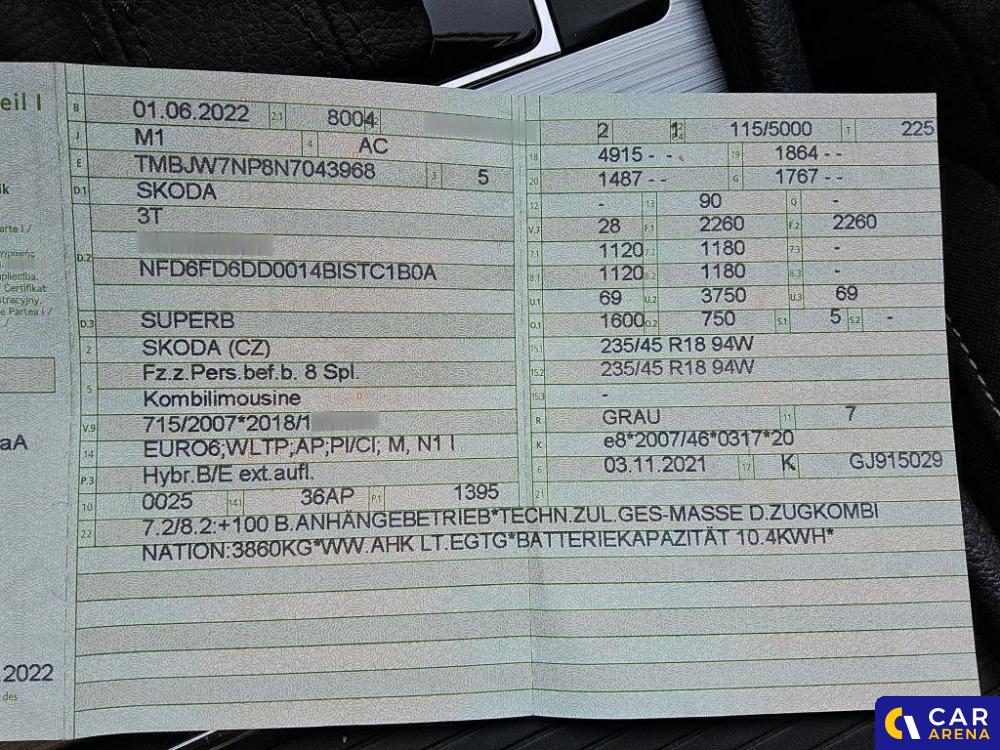 eil I
B 01.06.2022 2.1 8004 2 1 115/5000 T 225
J M1 4 AC 18 4915 - - 19 1864 - -
E TMBJW7NP8N7043968 3 5 20 1487 - - G 1767 - -
D.1 SKODA 12 - 13 90 Q -
3T V.7 28 F.1 2260 F.2 2260
7.1 1120 7.2 1180 7.3 -
D.2 NFD6FD6DD0014BISTC1B0A 8.1 1120 8.2 1180 8.3 -
U.1 69 U.2 3750 U.3 69
D.3 SUPERB O.1 1600 O.2 750 S.1 5 S.2 -
2 SKODA (CZ) 15.1 235/45 R18 94W
Fz.z.Pers.bef.b. 8 Spl. 15.2 235/45 R18 94W
5 Kombilimousine 15.3 -
V.9 715/2007*2018/1 R GRAU 11 7
14 EURO6;WLTP;AP;PI/CI; M, N1 I K e8*2007/46*0317*20
P.3 Hybr.B/E ext.aufl. 6 03.11.2021 17 K GJ915029
10 0025 14.1 36AP P.1 1395 21
22 7.2/8.2:+100 B.ANHÄNGEBETRIEB*TECHN.ZUL.GES-MASSE D.ZUGKOMBI
NATION:3860KG*WW.AHK LT.EGTG*BATTERIEKAPAZITÄT 10.4KWH*
ik
arte I /
pliecība.
Certifikat
stracyjny.
e Partea I /
aA
.2022
des
CAR
ARENA